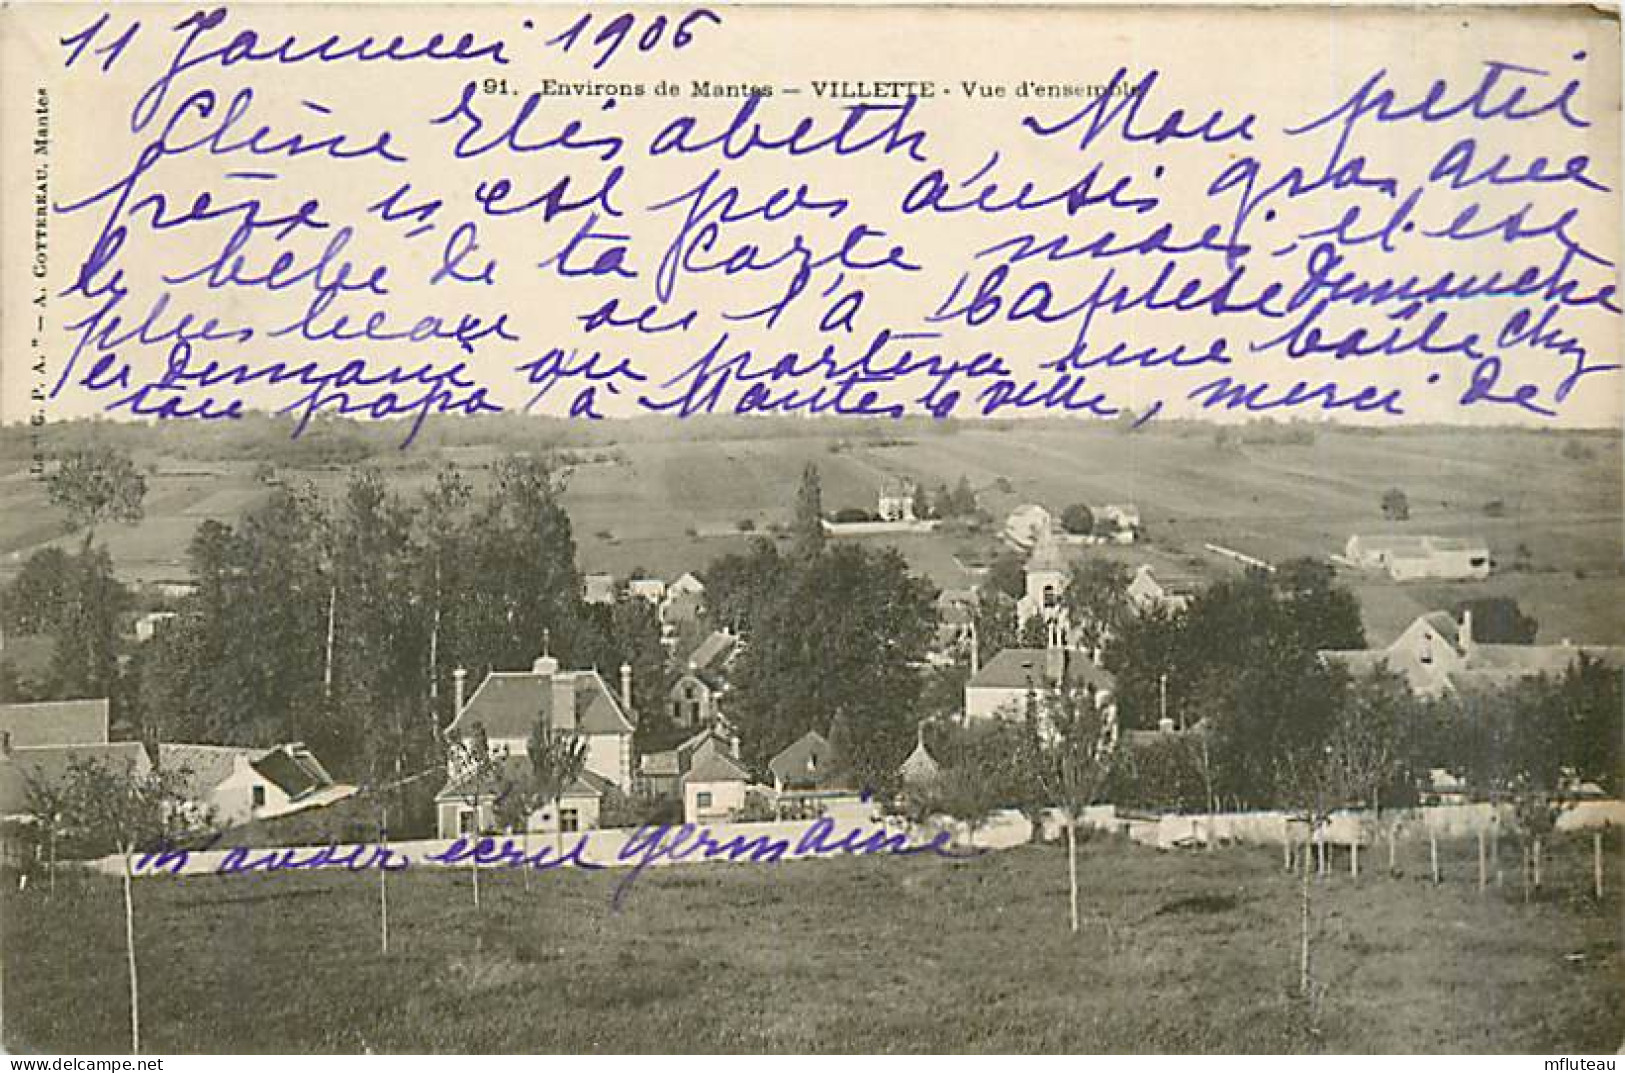 11 Janvier 1906
91. Environs de Mantes — VILLETTE - Vue d'ensemble
Chère Elisabeth, Mon petit
frère n'est pas aussi gros que
le bébé de ta carte mais il est
plus beau on l'a Baptisé Dimanche
et Demain on portera une boîte chez
ton papa à Mantes la ville, merci de
m'avoir écrit germaine
La "C. P. A." — A. COTTEREAU, Mantes
mfluteau